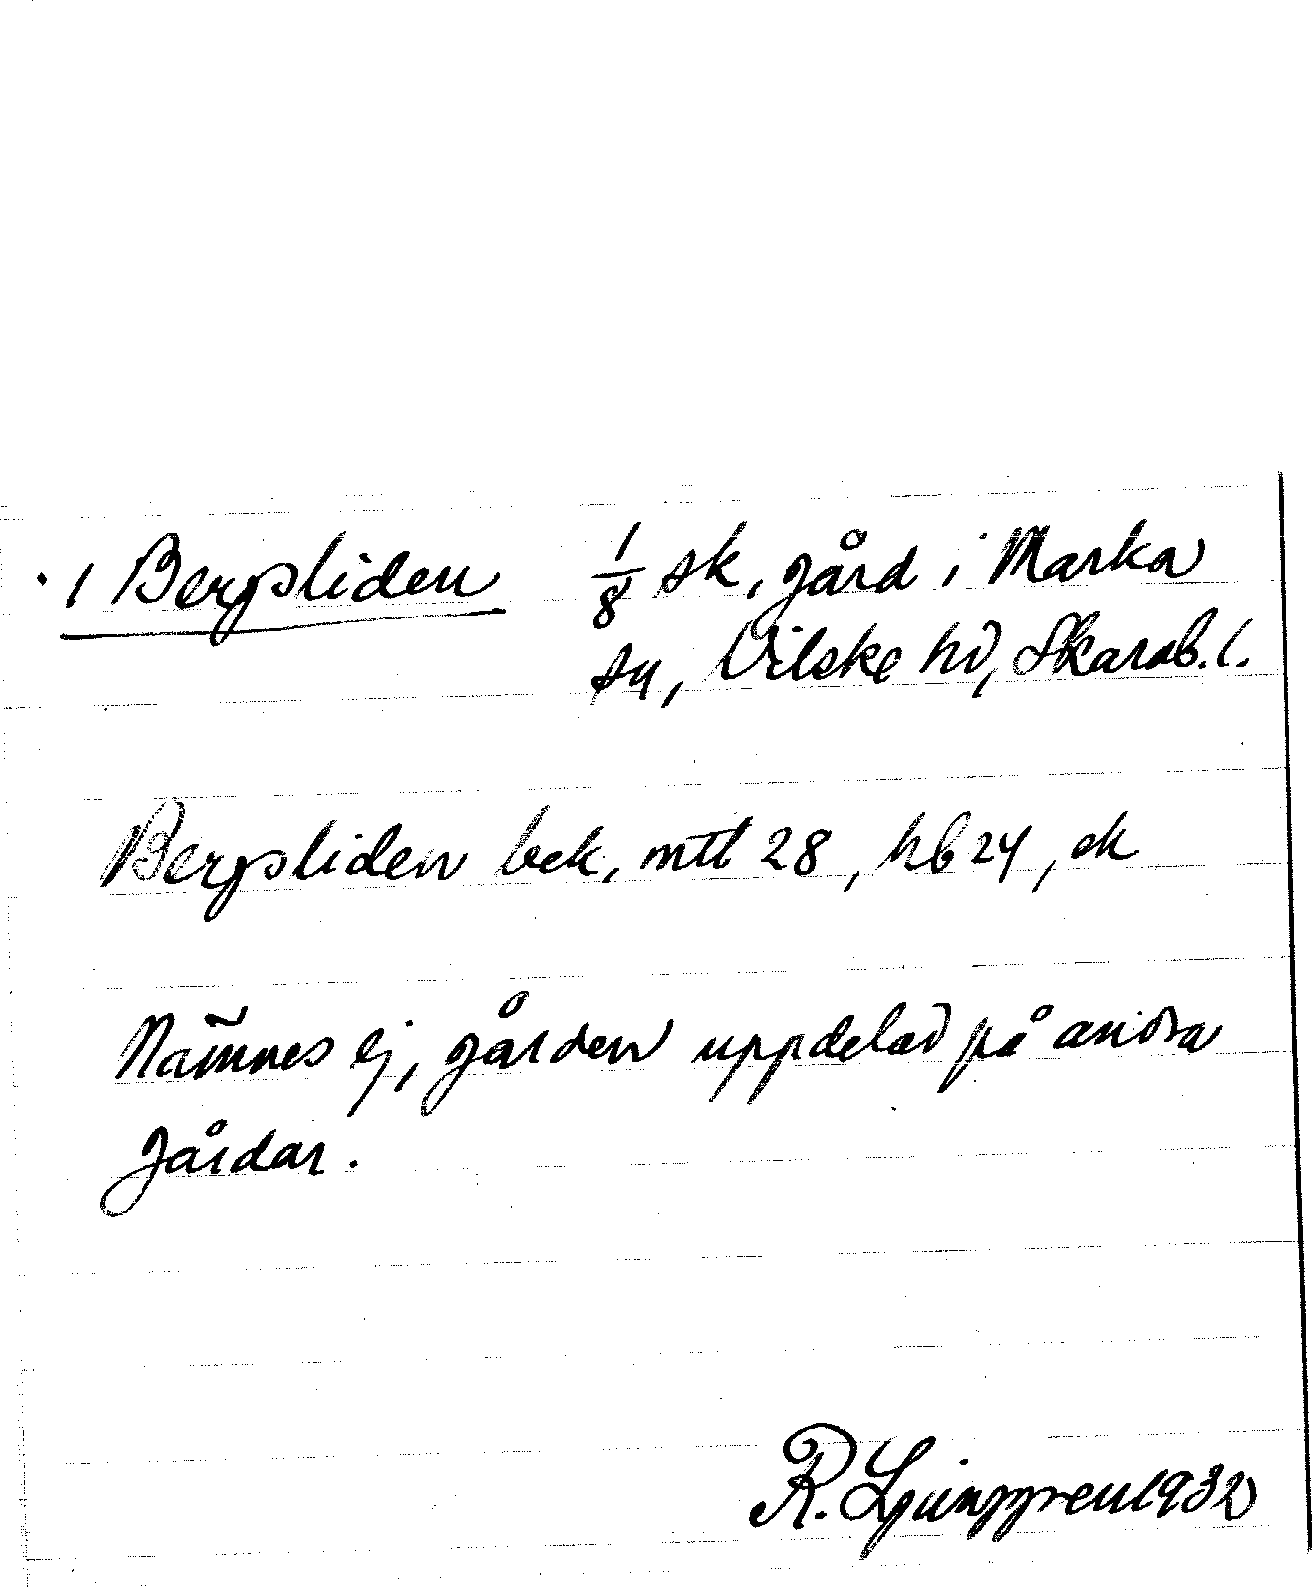 1 Bergsliden 1/8 sk, gård i Marka
sn, Vilske hd, Skarab. l.
Bergsliden bek, mtl 28, hb 24, ek
Nämnes ej, gården uppdelad på andra
gårdar.
R. Ljunggren 1932